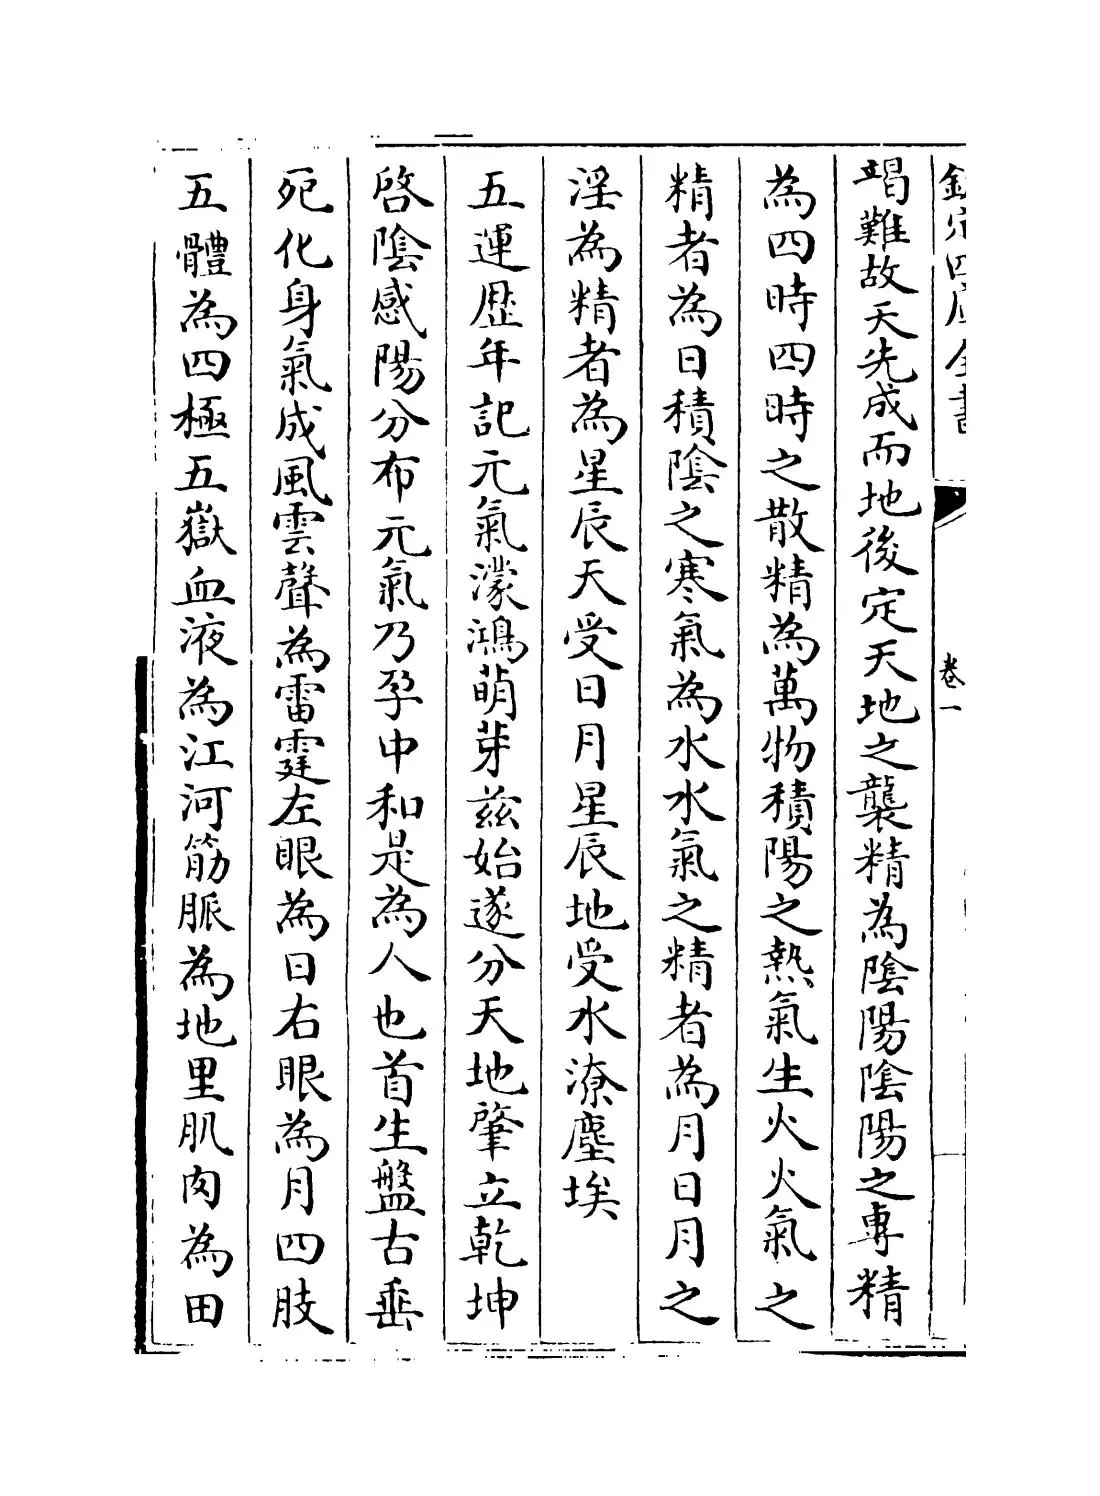 欽定四庫全書
卷一
竭難故天先成而地後定天地之襲精為陰陽陰陽之專精
為四時四時之散精為萬物積陽之熱氣生火火氣之
精者為日積陰之寒氣為水水氣之精者為月日月之
淫為精者為星辰天受日月星辰地受水潦塵埃
五運歴年記元氣濛鴻萌芽兹始遂分天地肇立乾坤
啓陰感陽分布元氣乃孕中和是為人也首生盤古垂
死化身氣成風雲聲為雷霆左眼為日右眼為月四肢
五體為四極五嶽血液為江河筋脈為地里肌肉為田